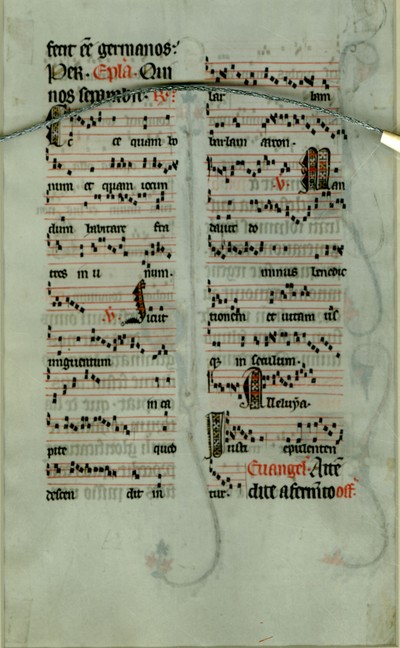 fecit ēē germanos:
Per. Epl̄a. Quis
nos separabit. R̄:
Ec ce quam bo
num et quam iocun
dum habitare fra
tres in u num.
V. Sicut
unguentum
in ca
pite quod
descen dit in
bar bam
barbam aaron.
V. Man
dauit do
minus benedic
tionem et uitam us
q; in seculum.
Alleluya.
Iusti epulenten
tur. Euangel. Attē
dite a ferm̄to off.